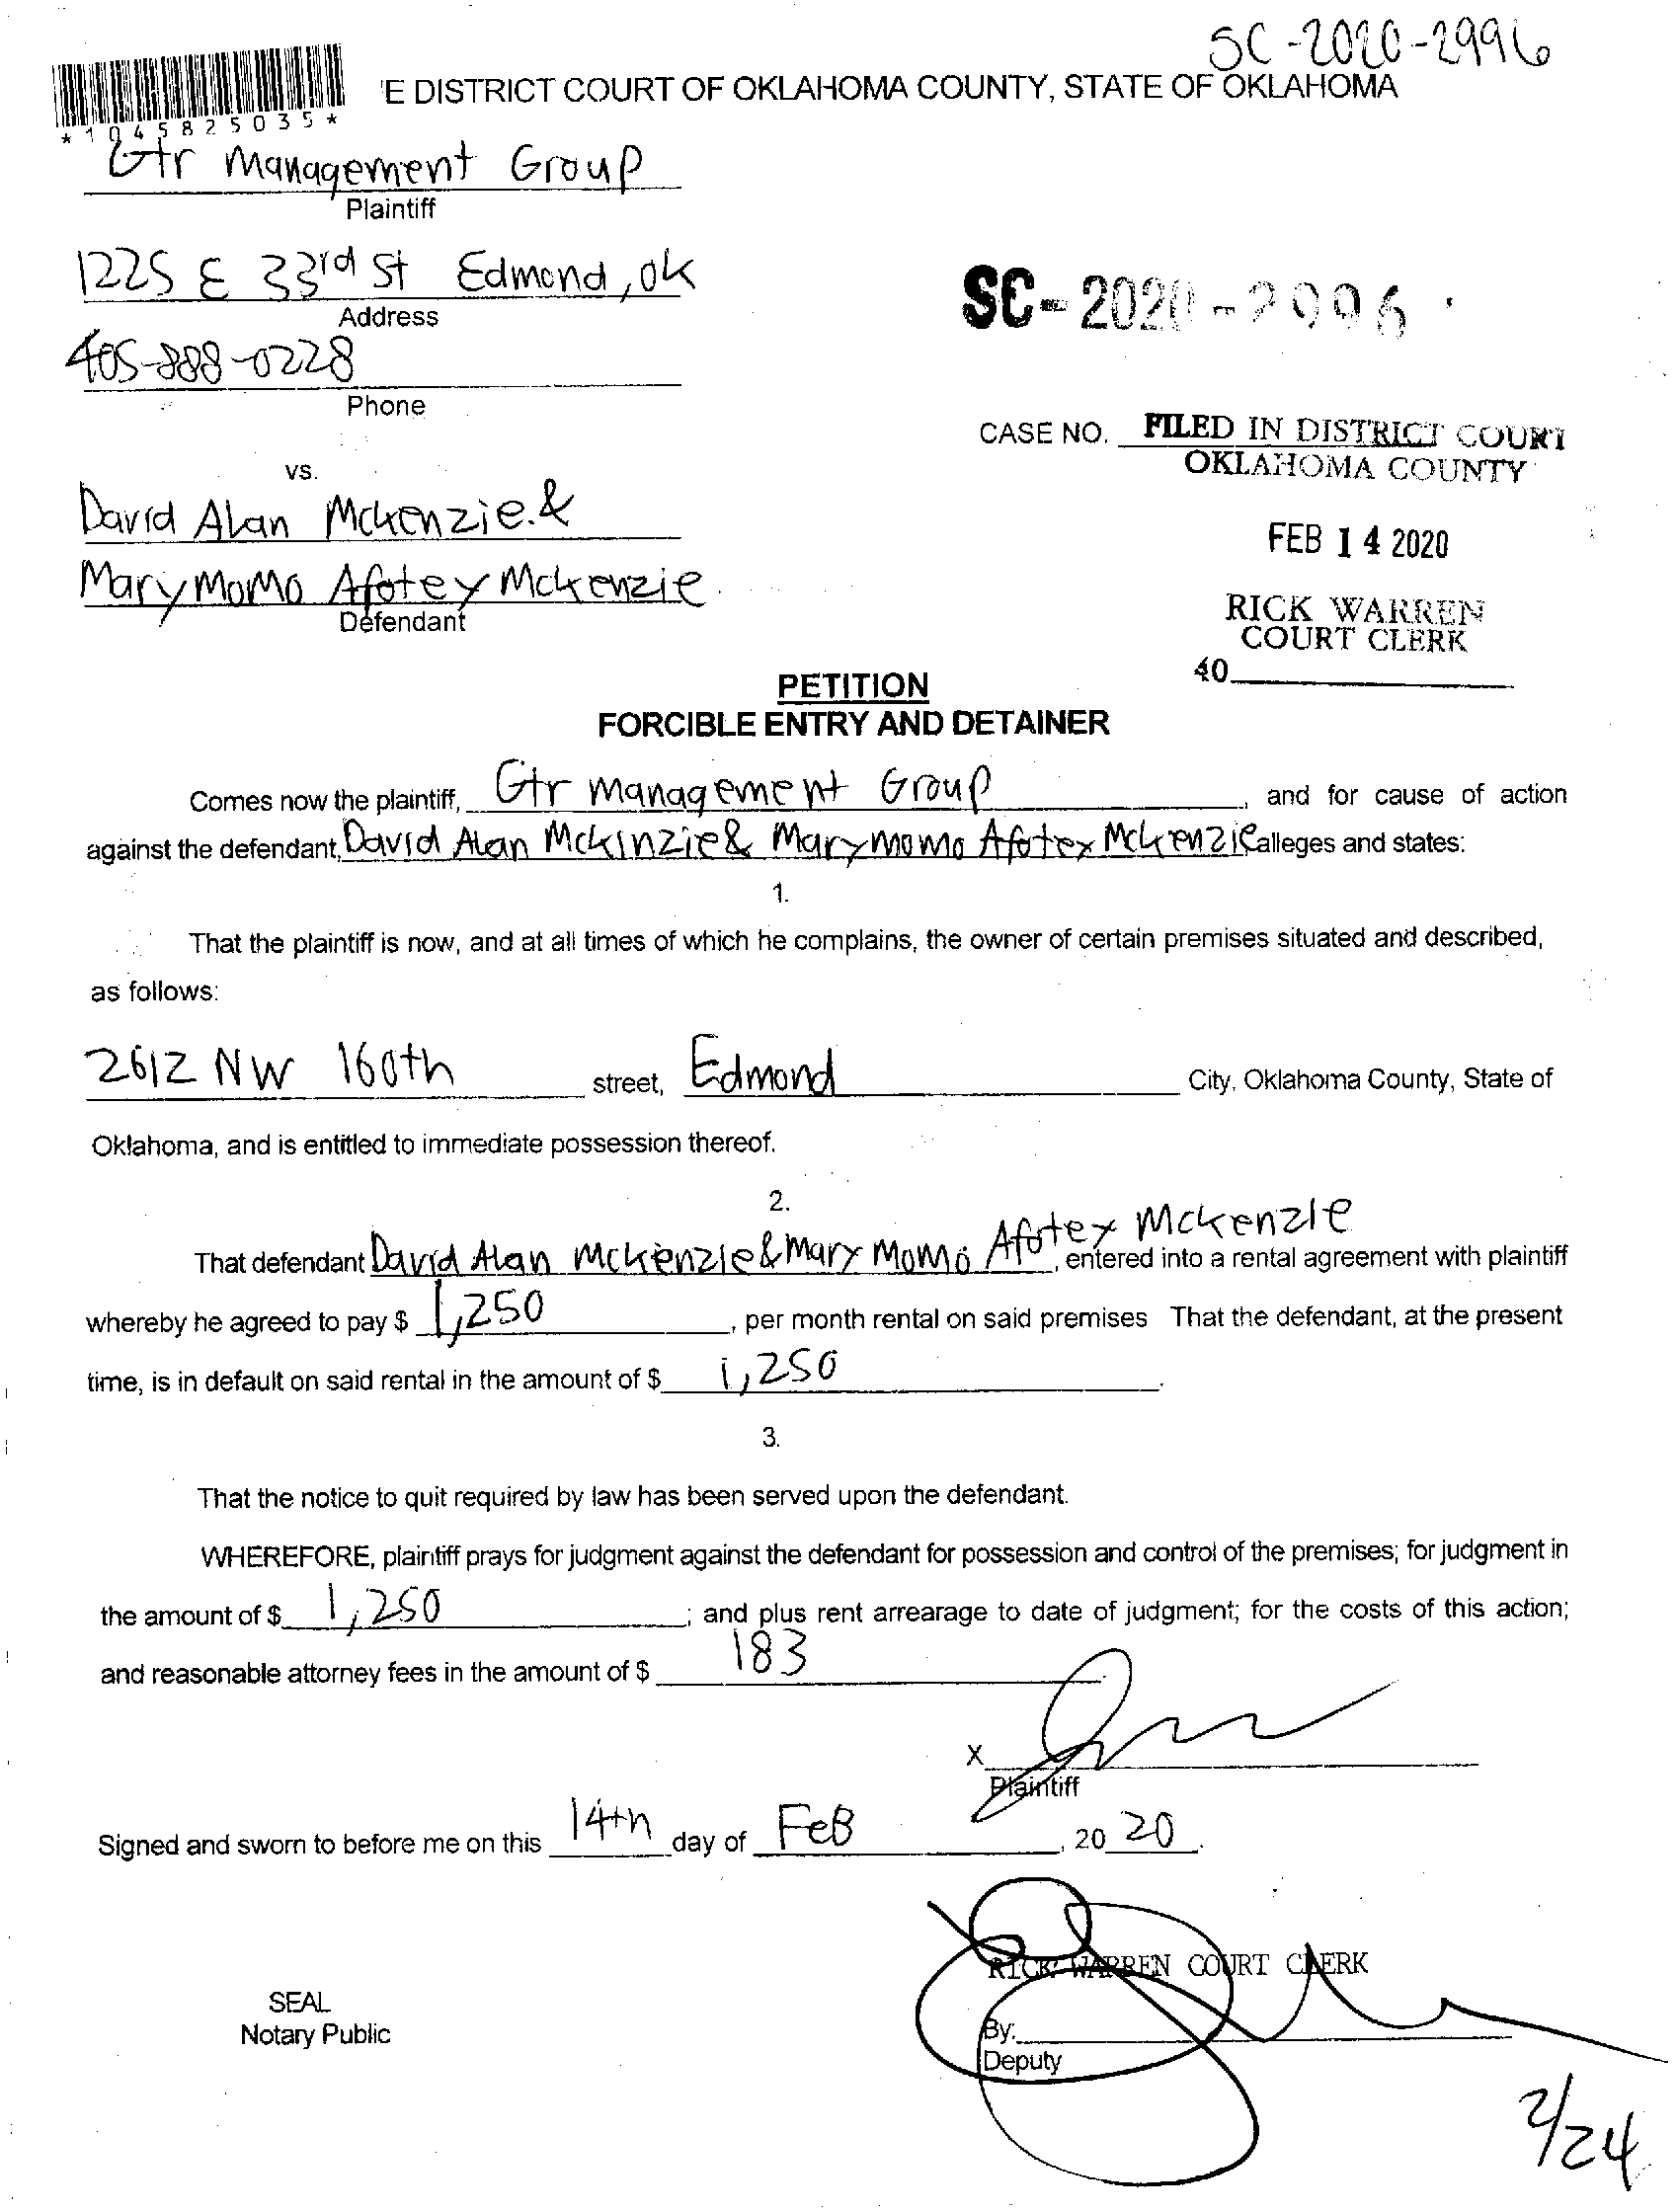 SC-2020-2996
'E DISTRICT COURT OF OKLAHOMA COUNTY, STATE OF OKLAHOMA
*1045825035*
Gtr Management Group
Plaintiff
1225 E 33rd St Edmond, OK
Address
SC-2020-2996
405-888-0228
Phone
CASE NO. FILED IN DISTRICT COURT
OKLAHOMA COUNTY
vs.
David Alan Mckenzie. &
FEB 14 2020
Mary Momo Afotey Mckenzie
Defendant
RICK WARREN
COURT CLERK
40
PETITION
FORCIBLE ENTRY AND DETAINER
Comes now the plaintiff, Gtr Management Group, and for cause of action
against the defendant, David Alan Mckinzie & Mary momo Afotey Mckenzie alleges and states:
1.
That the plaintiff is now, and at all times of which he complains, the owner of certain premises situated and described,
as follows:
2612 NW 160th street, Edmond City, Oklahoma County, State of
Oklahoma, and is entitled to immediate possession thereof.
2.
That defendant David Alan Mckenzie & Mary Momo Afotey Mckenzie, entered into a rental agreement with plaintiff
whereby he agreed to pay $ 1,250, per month rental on said premises That the defendant, at the present
time, is in default on said rental in the amount of $ 1,250.
3.
That the notice to quit required by law has been served upon the defendant.
WHEREFORE, plaintiff prays for judgment against the defendant for possession and control of the premises; for judgment in
the amount of $ 1,250; and plus rent arrearage to date of judgment; for the costs of this action;
and reasonable attorney fees in the amount of $ 183
X
Plaintiff
Signed and sworn to before me on this 14th day of FeB, 20 20.
RICK WARREN COURT CLERK
SEAL
Notary Public
By:
Deputy
2/24